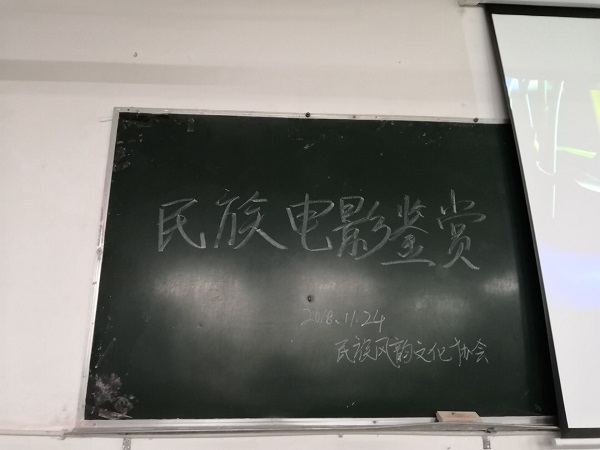 民族电影鉴赏
2018.11.24
民族风韵文化协会